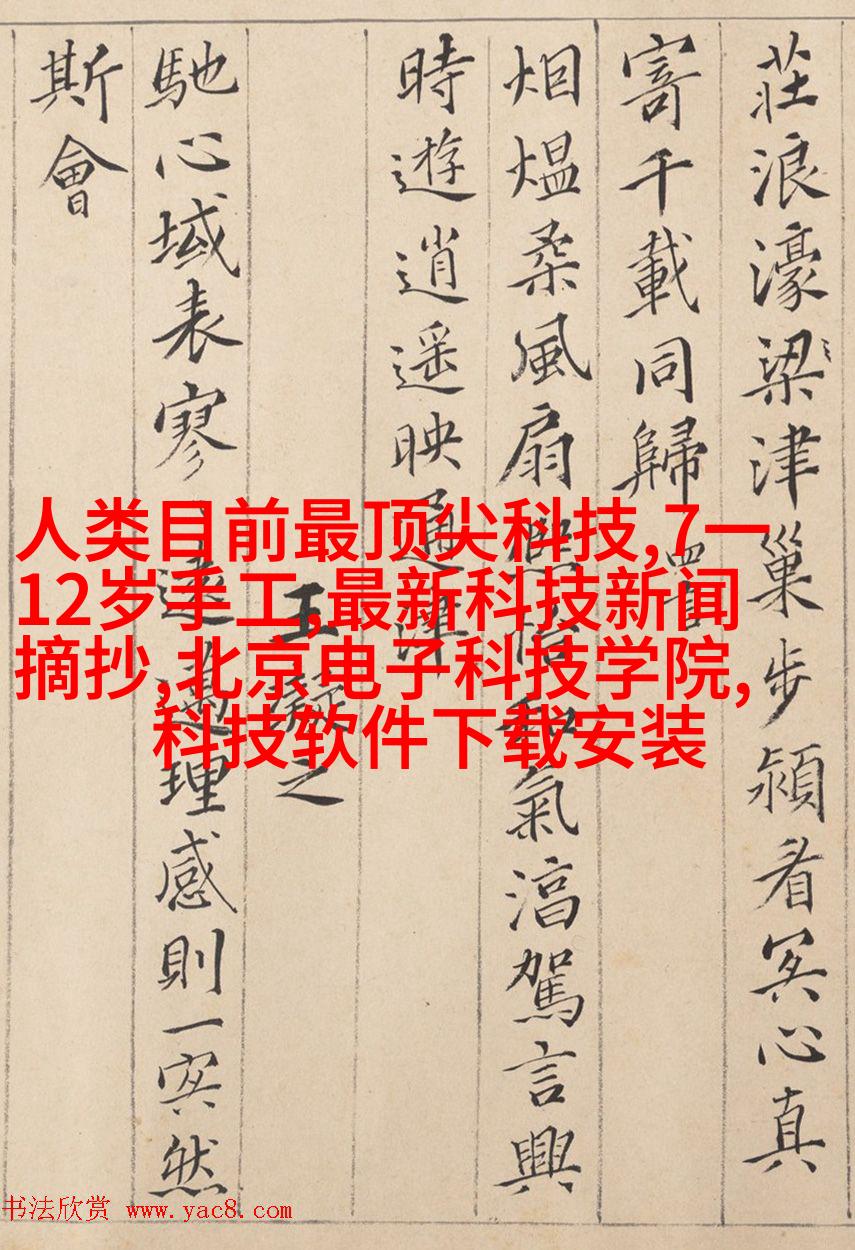 莊浪濠梁津巢步潁看冥心真
寄千載同歸
烟熅柔風扇
和氣淯駕言興
時遊逍遥映通津
王凝之
馳心域表寥
遠邁理感則一冥然
斯會
人类目前最顶尖科技,7一
12岁手工,最新科技新闻
摘抄,北京电子科技学院,
科技软件下载安装
书法欣赏 www.yac8.com